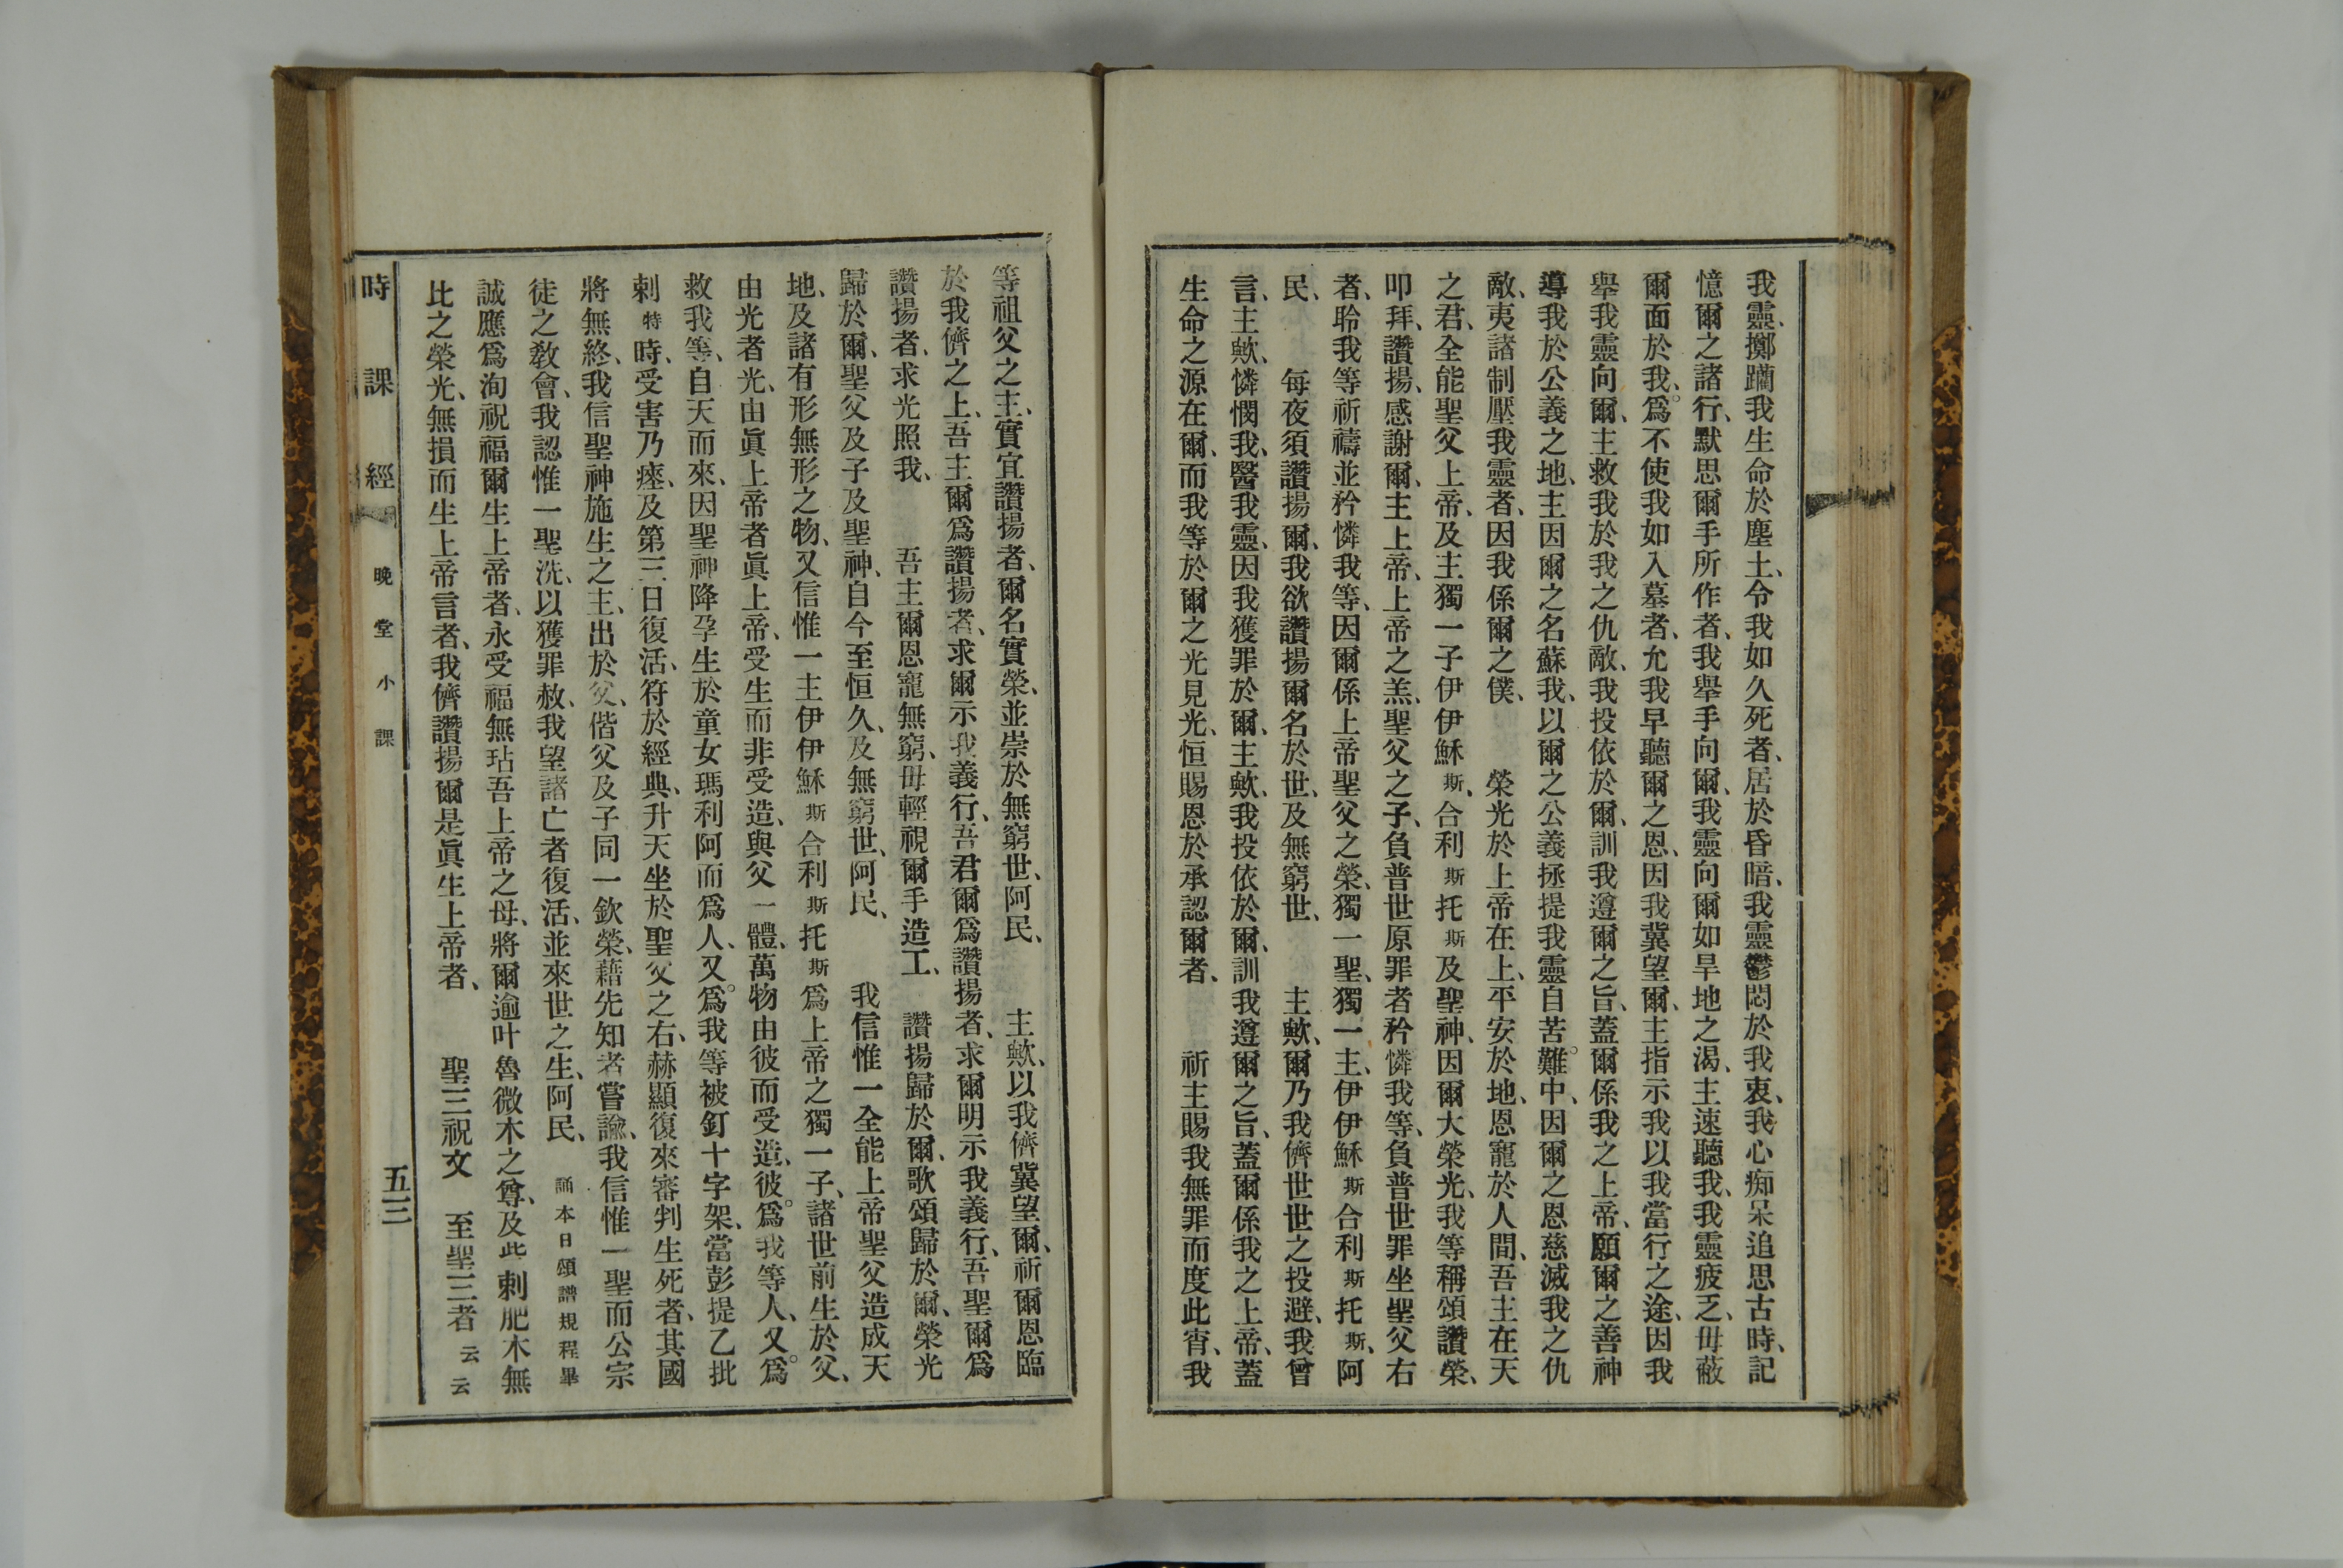 我靈、擲躪我生命於塵土、令我如久死者、居於昏暗、我靈鬱悶於我衷、我心痴呆追思古時、記
憶爾之諸行、默思爾手所作者、我舉手向爾、我靈向爾如旱地之渴、主速聽我、我靈疲乏、毋蔽
爾面於我、爲不使我如入墓者、允我早聽爾之恩、因我冀望爾、主指示我以我當行之途、因我
舉我靈向爾、主救我於我之仇敵、我投依於爾、訓我遵爾之旨、蓋爾係我之上帝、願爾之善神
導我於公義之地、主因爾之名蘇我、以爾之公義拯提我靈自苦難中、因爾之恩慈滅我之仇
敵、夷諸制壓我靈者、因我係爾之僕、　榮光於上帝在上、平安於地、恩寵於人間、吾主在天
之君、全能聖父上帝、及主獨一子伊伊穌斯、合利斯托斯及聖神、因爾大榮光、我等稱頌讚榮、
叩拜、讚揚、感謝爾、主上帝、上帝之羔、聖父之子、負普世原罪者矜憐我等、負普世罪坐聖父右
者、聆我等祈禱並矜憐我等、因爾係上帝聖父之榮、獨一聖、獨一主、伊伊穌斯合利斯托斯、阿
民、　每夜須讚揚爾、我欲讚揚爾名於世、及無窮世、　主歟、爾乃我儕世世之投避、我曾
言、主歟、憐憫我、醫我靈、因我獲罪於爾、主歟、我投依於爾、訓我遵爾之旨、蓋爾係我之上帝、蓋
生命之源在爾、而我等於爾之光見光、恒賜恩於承認爾者、　祈主賜我無罪而度此宵、我
等祖父之主、實宜讚揚者、爾名實榮、並崇於無窮世、阿民、　主歟、以我儕冀望爾、祈爾恩臨
於我儕之上、吾主爾爲讚揚者、求爾示我義行、吾君爾爲讚揚者、求爾明示我義行、吾聖爾爲
讚揚者、求光照我、　吾主爾恩寵無窮、毋輕視爾手造工、　讚揚歸於爾、歌頌歸於爾、榮光
歸於爾、聖父及子及聖神、自今至恒久、及無窮世、阿民、　我信惟一全能上帝聖父造成天
地、及諸有形無形之物、又信惟一主伊伊穌斯合利斯托斯爲上帝之獨一子、諸世前生於父、
由光者光、由眞上帝者眞上帝、受生而非受造、與父一體、萬物由彼而受造、彼爲我等人、又爲
救我等、自天而來、因聖神降孕生於童女瑪利阿而爲人、又爲我等被釘十字架、當彭提乙批
剌特時、受害乃瘞、及第三日復活、符於經典、升天坐於聖父之右、赫顯復來審判生死者、其國
將無終、我信聖神施生之主、出於父、偕父及子同一欽榮、藉先知者嘗諭、我信惟一聖而公宗
徒之敎會、我認惟一聖洗、以獲罪赦、我望諸亡者復活、並來世之生、阿民、　誦本日頌譜規程畢
誠應爲洵祝福爾生上帝者、永受福無玷吾上帝之母、將爾逾叶魯微木之尊、及此剌肥木無
比之榮光、無損而生上帝言者、我儕讚揚爾是眞生上帝者、　聖三祝文　至聖三者云云
時課經　晚堂小課　五三